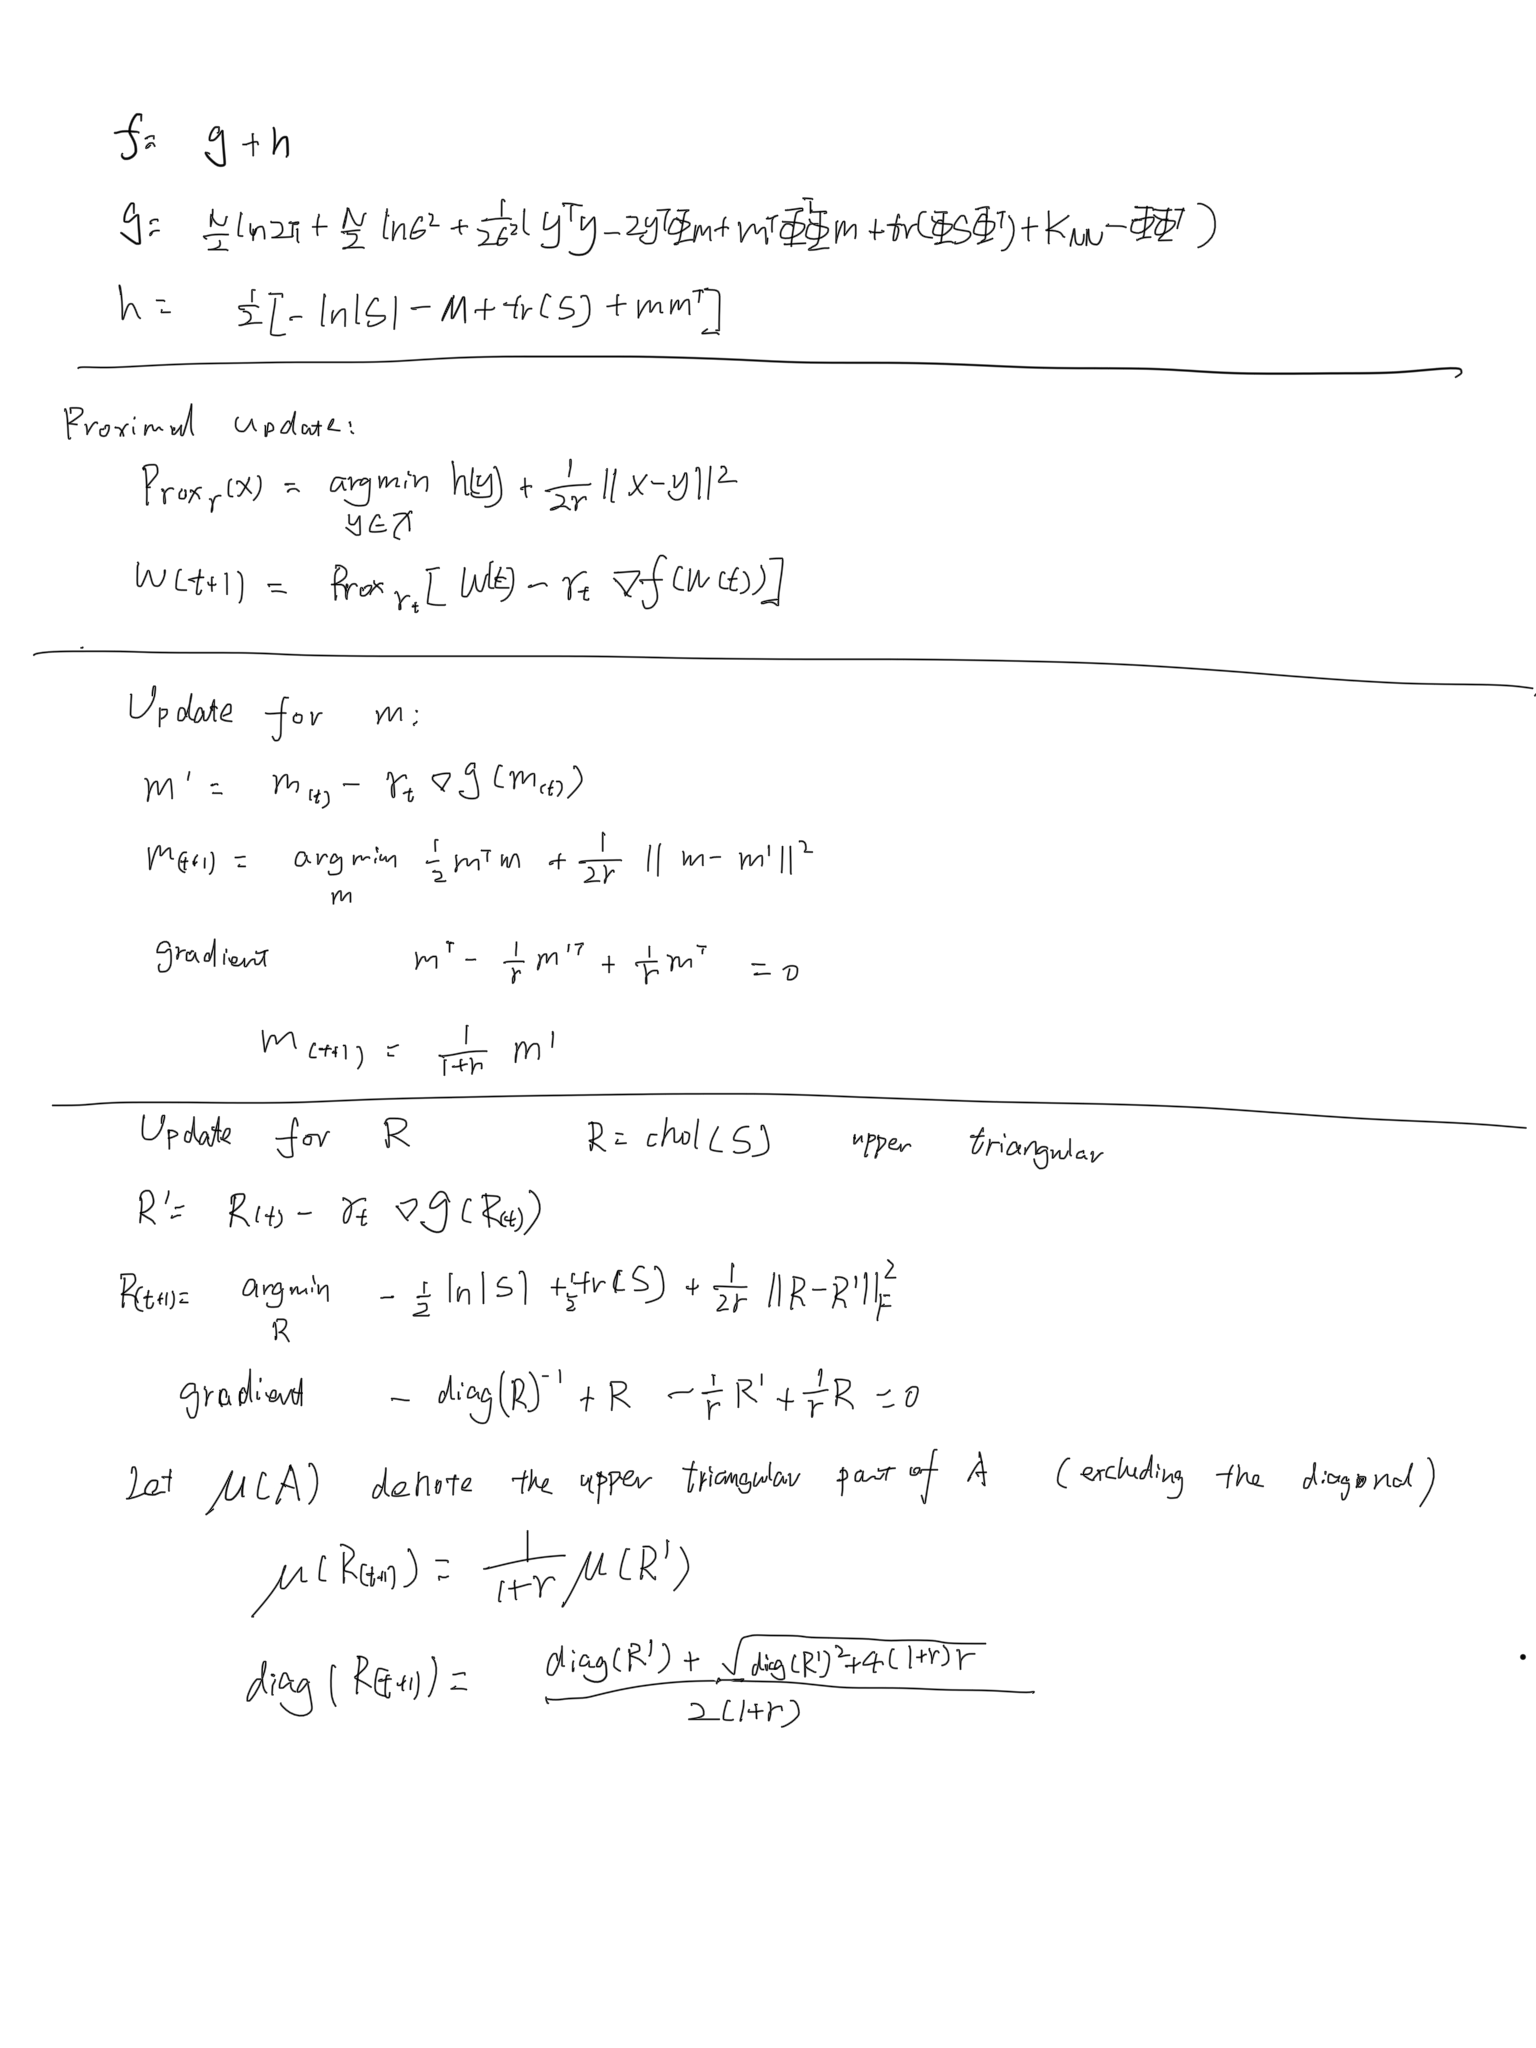 f = g + h
g = N/2 ln2π + N/2 lnσ² + 1/2σ² ( yᵀy - 2yᵀΦm + mᵀΦᵀΦm + tr(ΦSΦᵀ) + K_NN - ΦΦᵀ )
h = 1/2 [ - ln|S| - M + tr(S) + mmᵀ ]
Proximal update:
Prox_r(x) = argmin h(y) + 1/2r || x-y ||²
y∈X
W(t+1) = Prox_rₜ [ W(t) - rₜ ∇f(W(t)) ]
Update for m:
m' = m₍ₜ₎ - rₜ ∇g(m₍ₜ₎)
m₍ₜ₊₁₎ = argmin 1/2 mᵀm + 1/2r || m - m' ||²
m
gradient mᵀ - 1/r m'ᵀ + 1/r mᵀ = 0
m₍ₜ₊₁₎ = 1/1+r m'
Update for R R = chol(S) upper triangular
R' = R₍ₜ₎ - rₜ ∇g(R₍ₜ₎)
R₍ₜ₊₁₎ = argmin - 1/2 ln|S| + 1/2 tr(S) + 1/2r ||R-R'||²_F
R
gradient - diag(R)⁻¹ + R - 1/r R' + 1/r R = 0
Let μ(A) denote the upper triangular part of A (excluding the diagonal)
μ(R₍ₜ₊₁₎) = 1/1+r μ(R')
diag(R₍ₜ₊₁₎) = diag(R') + √diag(R')²+4(1+r)r / 2(1+r)